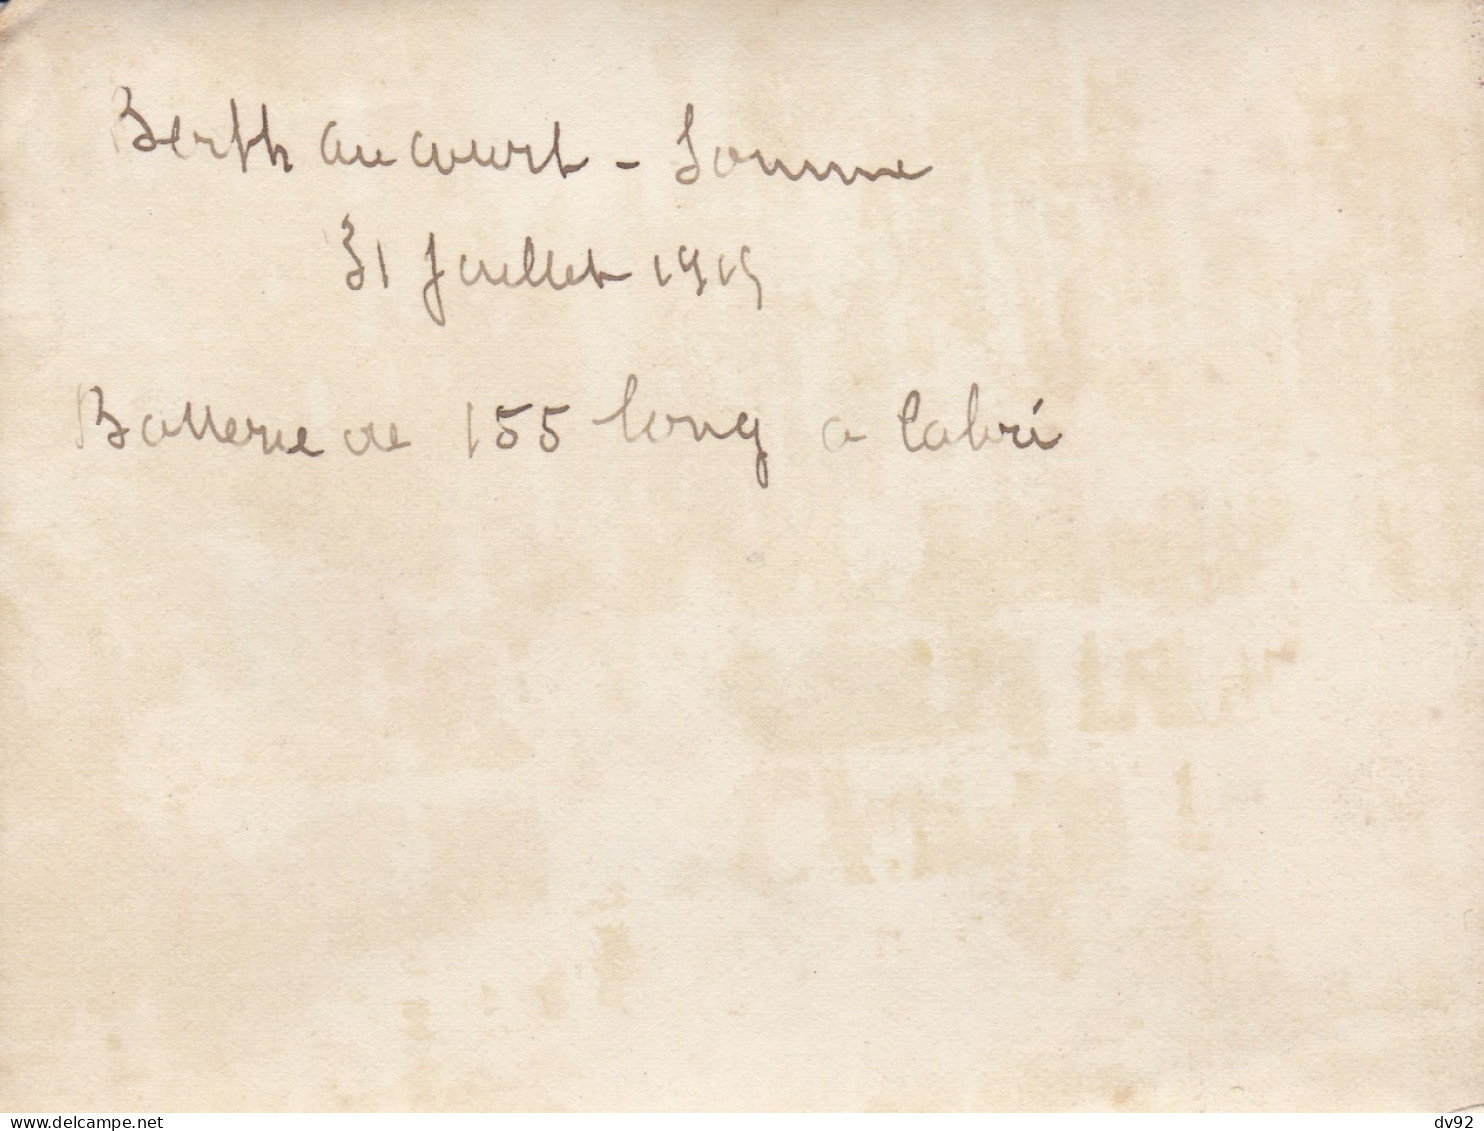 Berthaucourt - Somme
31 Juillet 1915
Batterie de 155 long a l'abri
delcampe.net
dv92